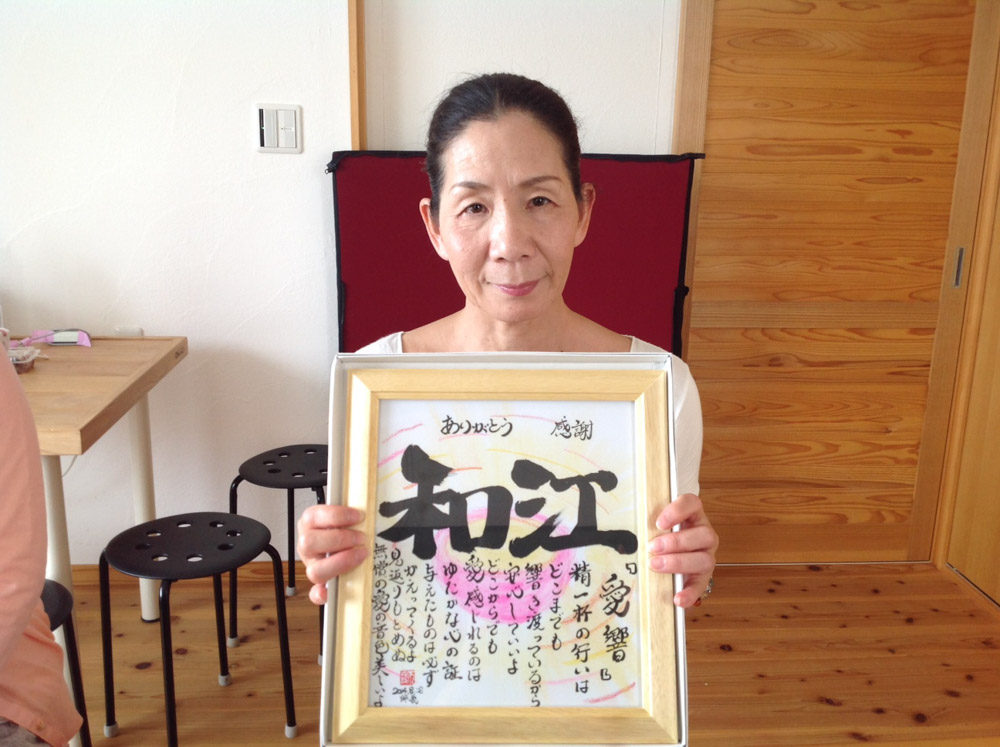 ありがとう 感謝
和江
『愛響』
精一杯の行いは
どこまでも
響き渡っているから
安心していいよ
どこからでも
愛感じれるのは
ゆたかな心の証
与えたものは必ず
かえってくるよ
見返りもとめぬ
無償の愛の音色美しいよ